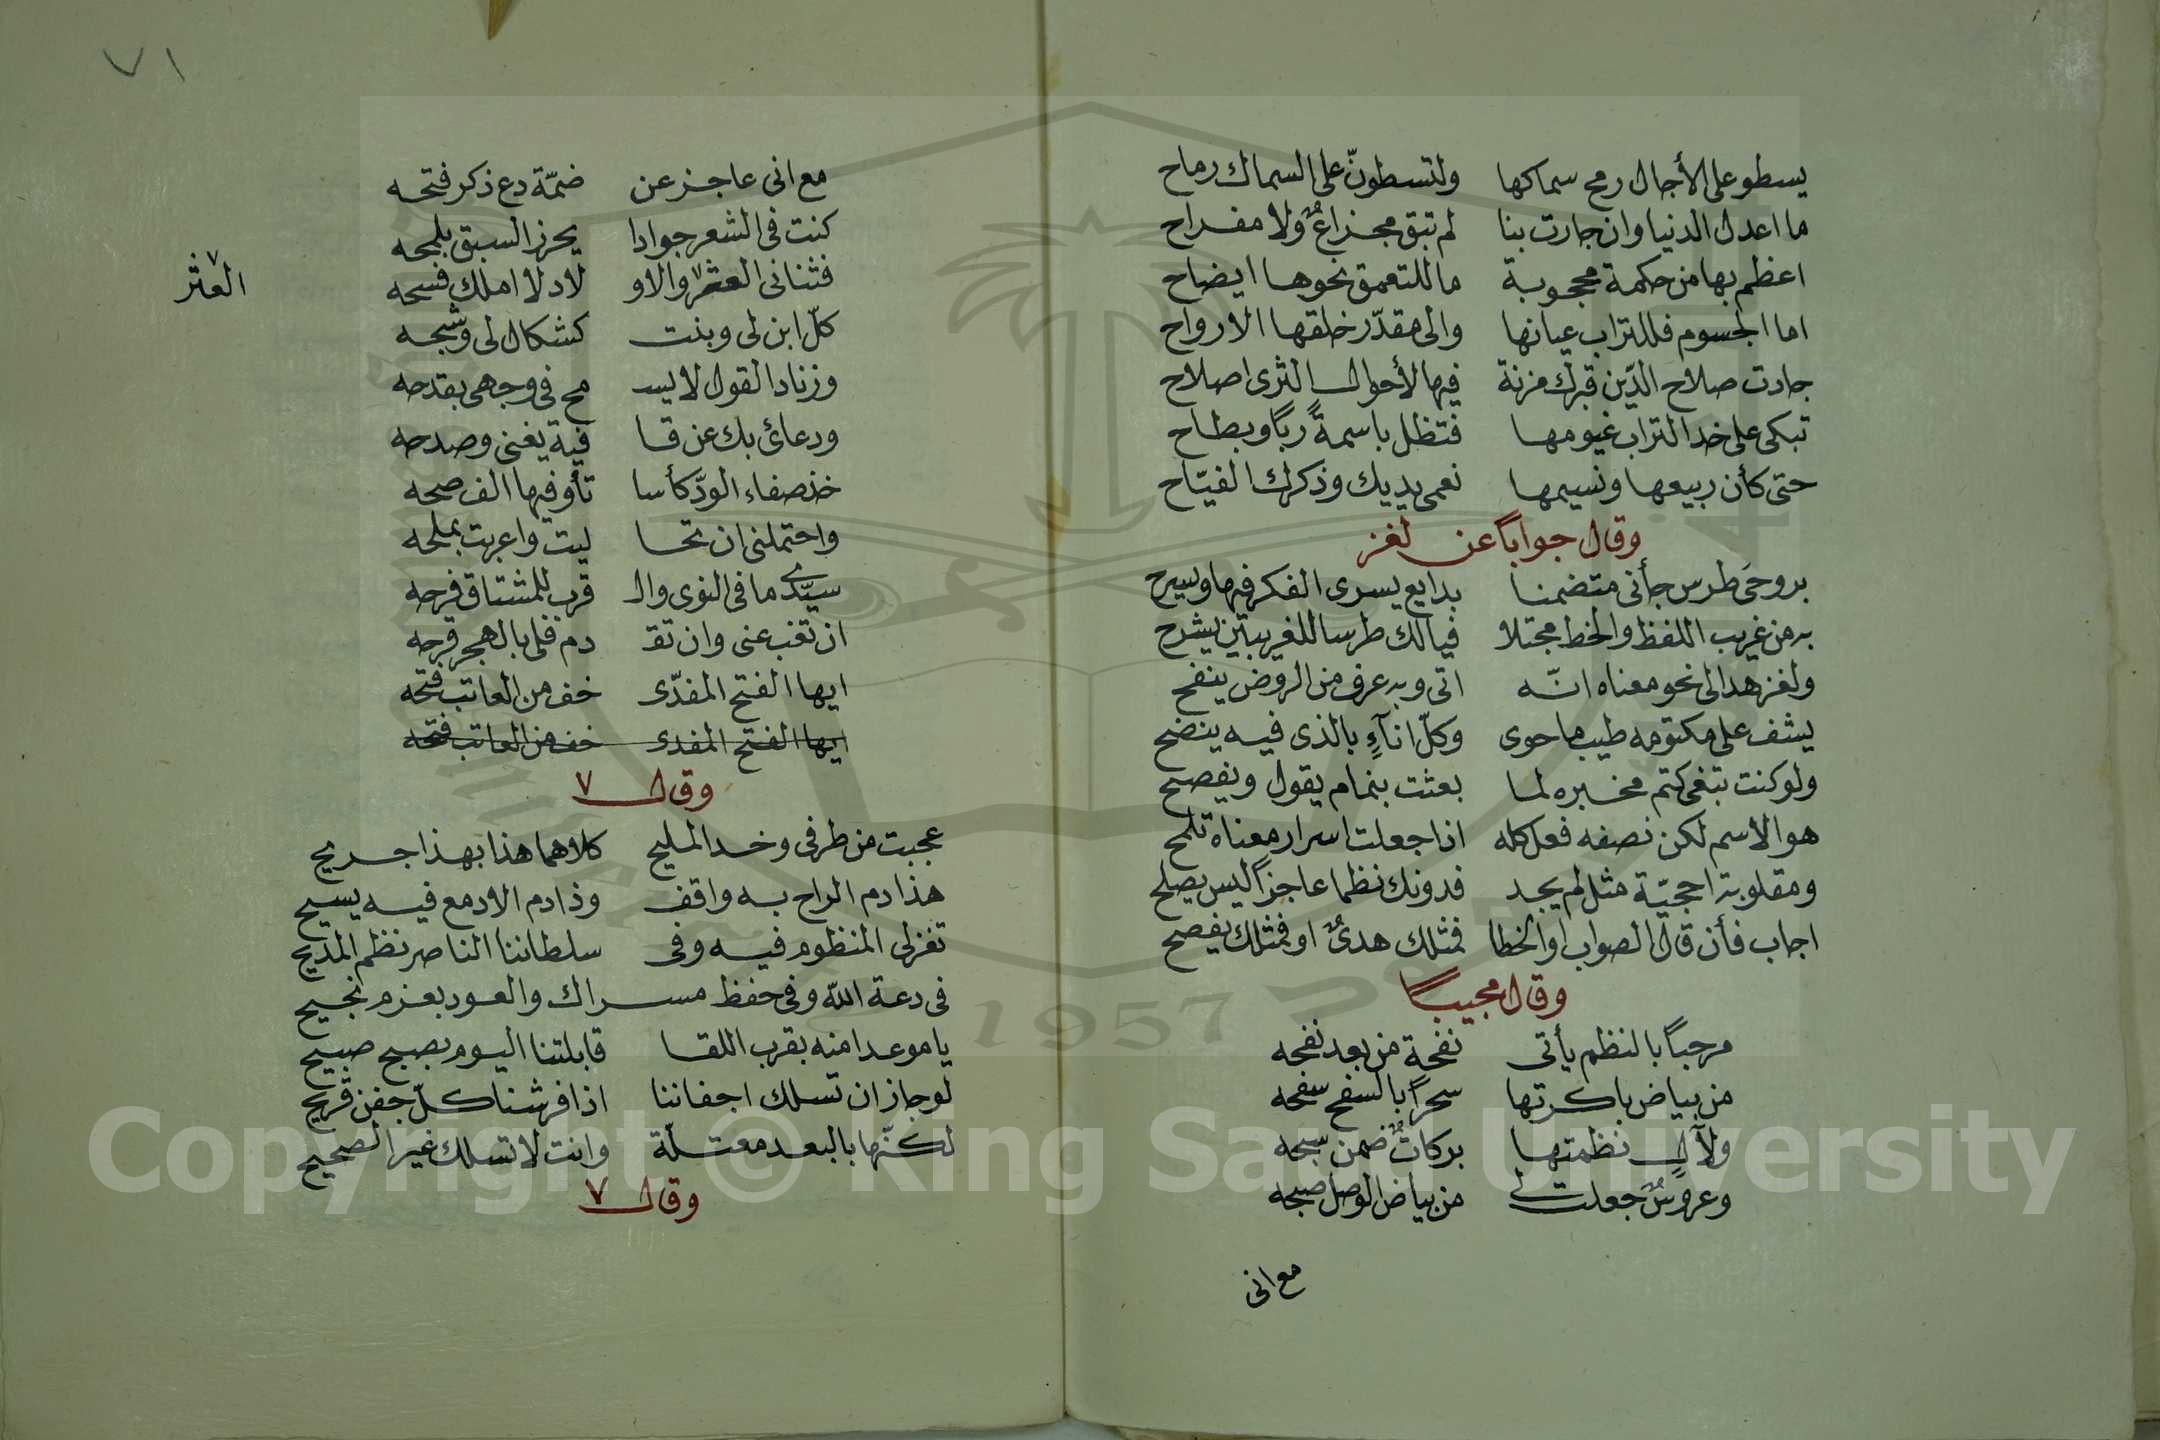 يسطو على الأجال رمح سماكها ولتسطونّ على السماك رماح
ما اعدل الدنيا وان جارت بنا لم تبق مجزاعٌ ولا مفراح
اعظم بها من حكمة محجوبة ما للتعمق نحوها ايضاح
اما الجسوم فللتراب عيانها والى مقدّر خلقها الارواح
جادت صلاح الدّين قبرك مزنة فيها لأحوال الثرى اصلاح
تبكى على خد التراب غيومها فتظل باسمةً ربًا وبطاح
حتى كأن ربيعها ونسيمها نعمى يديك وذكرك الفيّاح
وقال جوابًا عن لغز
بروحى طرس جأنى متضمنا بدايع يسرى الفكر فيها ويسرح
به من غريب اللفظ والخط مجتلا فيالك طرسا للغريبين يشرح
ولغز هدا الى نحو معناه انّه اتى وبه عرف من الروض ينفح
يشف على مكتومه طيب ما حوى وكلّ انآءٍ بالذى فيه ينضح
ولو كنت تبغى كتم مخبره لما بعثت بنمام يقول ويفصح
هو الاسم لكن نصفه فعل كله اذا جعلت اسرار معناه تلمح
ومقلوبه احجيّة مثل لم يجد فدونك نظما عاجزًا ليس يصلح
اجاب فأن قال الصواب او الخطا فمثلك هدىٌ او فمثلك يفصح
وقال مجيبًا
مرحبًا بالنظم يأتى نفحة من بعد نفحه
من بياض باكرتها سحرًا بالسفح سفحه
ولآلٍ نظمتها بركاتٌ ضمن سبحه
وعروسٌ جعلت لى من بياض الوصل صبحه
معانى
٧١
معانى عاجز عن ضمّة دع ذكر فتحه
كنت فى الشعر جوادا يحرز السبق بلمحه
فثنانى العثر والاو لاد لا املك فسحه
العثر
كلّ ابن لى وبنت كشكال لى وشبحه
وزناد القول لا يسـ مح فى وجهى بقدحه
ودعائ بك عن قا فية يغنى وصدحه
خذ صفاء الودّ كأسا تأو فيها الف صحه
واحتملنى ان تحا ليت واعربت بملحه
سيّدى ما فى النوى والـ قرب للمشتاق فرحه
ان تغب عنى وان تقـ دم فلى بالهجر قرحه
ايها الفتح المفدّى خف من العاتب فتحه
ايها الفتح المفدى خف من العاتب فتحه
وقال ٧
عجبت من طرفى وخد المليح كلاهما هذا بهذا جريح
هذا دم الراح به واقف وذا دم الادمع فيه يسيح
تغزلى المنظوم فيه وفى سلطاننا الناصر نظم المديح
فى دعة الله وفى حفظ مسراك والعود بعزم نجيح
يا موعدا منه بقرب اللقا قابلتنا اليوم بصبح صبيح
لو جاز ان تسلك اجفاننا اذا فرشنا كلّ جفن قريح
لكنّها بالبعد معتلّة وانت لا تسلك غير الصحيح
وقال ٧
Copyright © King Saud University
1957